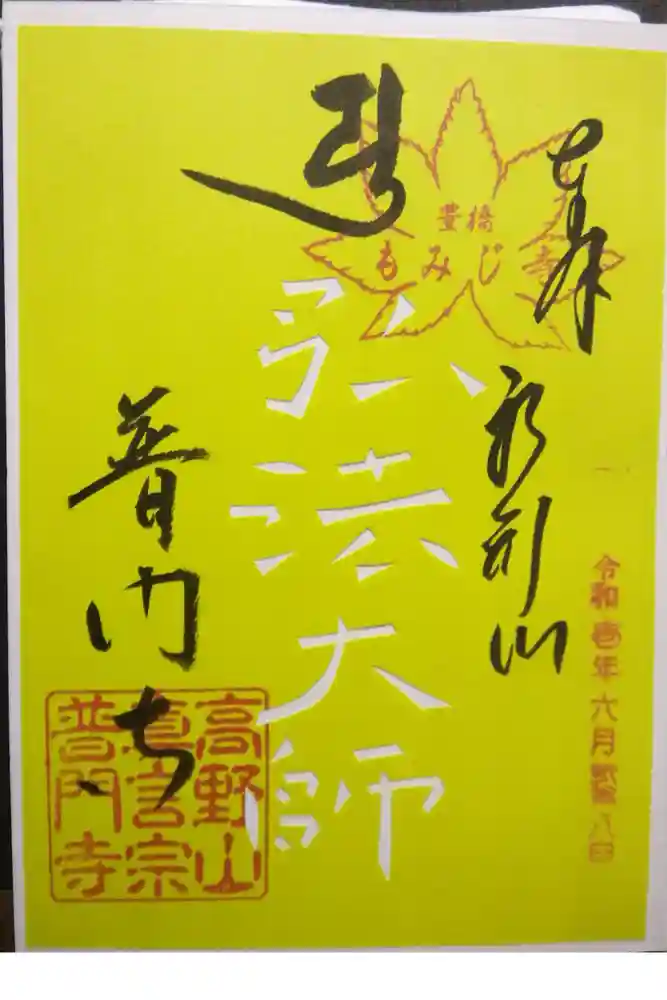 奉拝
豊橋
もみじ寺
船形山
令和壱年六月 八日
弘法大師
普門寺
高野山
真言宗
普門寺